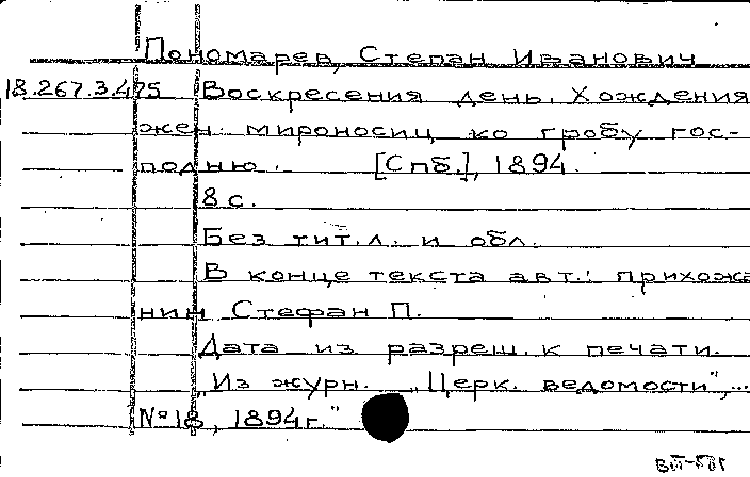 Пономарев, Степан Иванович
18.267.3.475 Воскресения день. Хождения
жен мироносиц ко гробу гос-
подню. [Спб.], 1894.
8 с.
Без тит. л. и обл.
В конце текста авт.: прихожа
нин Стефан П.
Дата из разреш. к печати.
"Из журн. "Церк. ведомости",
№ 18, 1894 г."